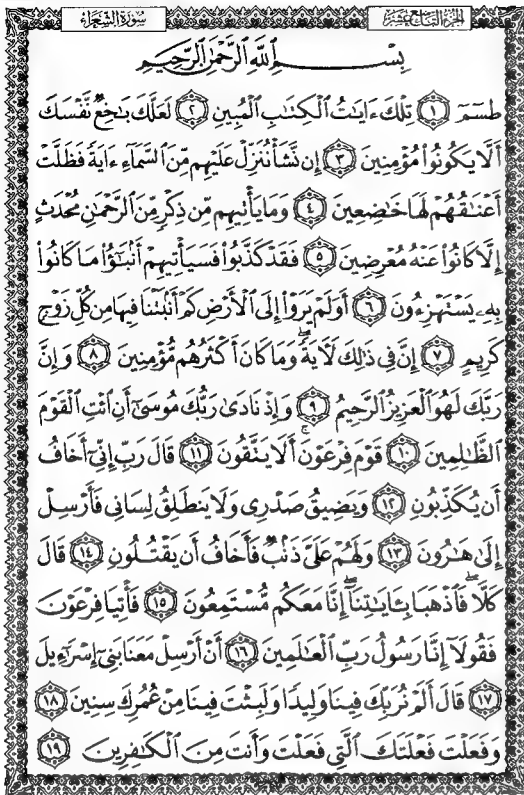 الجزء التاسع عشر سورة الشعراء
بِسْمِ اللَّهِ الرَّحْمَٰنِ الرَّحِيمِ
طسٓمٓ ١ تِلْكَ ءَايَٰتُ ٱلْكِتَٰبِ ٱلْمُبِينِ ٢ لَعَلَّكَ بَٰخِعٌ نَّفْسَكَ
أَلَّا يَكُونُوا۟ مُؤْمِنِينَ ٣ إِن نَّشَأْ نُنَزِّلْ عَلَيْهِم مِّنَ ٱلسَّمَآءِ ءَايَةً فَظَلَّتْ
أَعْنَٰقُهُمْ لَهَا خَٰضِعِينَ ٤ وَمَا يَأْتِيهِم مِّن ذِكْرٍ مِّنَ ٱلرَّحْمَٰنِ مُحْدَثٍ
إِلَّا كَانُوا۟ عَنْهُ مُعْرِضِينَ ٥ فَقَدْ كَذَّبُوا۟ فَسَيَأْتِيهِمْ أَنۢبَٰٓؤُا۟ مَا كَانُوا۟
بِهِۦ يَسْتَهْزِءُونَ ٦ أَوَلَمْ يَرَوْا۟ إِلَى ٱلْأَرْضِ كَمْ أَنۢبَتْنَا فِيهَا مِن كُلِّ زَوْجٍ
كَرِيمٍ ٧ إِنَّ فِى ذَٰلِكَ لَءَايَةً ۖ وَمَا كَانَ أَكْثَرُهُم مُّؤْمِنِينَ ٨ وَإِنَّ
رَبَّكَ لَهُوَ ٱلْعَزِيزُ ٱلرَّحِيمُ ٩ وَإِذْ نَادَىٰ رَبُّكَ مُوسَىٰٓ أَنِ ٱئْتِ ٱلْقَوْمَ
ٱلظَّٰلِمِينَ ١٠ قَوْمَ فِرْعَوْنَ ۚ أَلَا يَتَّقُونَ ١١ قَالَ رَبِّ إِنِّىٓ أَخَافُ
أَن يُكَذِّبُونِ ١٢ وَيَضِيقُ صَدْرِى وَلَا يَنطَلِقُ لِسَانِى فَأَرْسِلْ
إِلَىٰ هَٰرُونَ ١٣ وَلَهُمْ عَلَىَّ ذَنۢبٌ فَأَخَافُ أَن يَقْتُلُونِ ١٤ قَالَ
كَلَّا ۖ فَٱذْهَبَا بِـَٔايَٰتِنَآ ۖ إِنَّا مَعَكُم مُّسْتَمِعُونَ ١٥ فَأْتِيَا فِرْعَوْنَ
فَقُولَآ إِنَّا رَسُولُ رَبِّ ٱلْعَٰلَمِينَ ١٦ أَنْ أَرْسِلْ مَعَنَا بَنِىٓ إِسْرَٰٓءِيلَ
١٧ قَالَ أَلَمْ نُرَبِّكَ فِينَا وَلِيدًا وَلَبِثْتَ فِينَا مِنْ عُمُرِكَ سِنِينَ ١٨
وَفَعَلْتَ فَعْلَتَكَ ٱلَّتِى فَعَلْتَ وَأَنتَ مِنَ ٱلْكَٰفِرِينَ ١٩